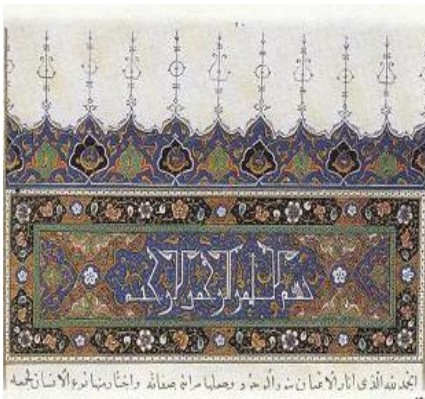 بسم الله الرحمن الرحيم
الحمد لله الذى انار الاعيان بنور الوجود وجعلها مرائى صفاته واختار منها نوع الانسان لجمعه